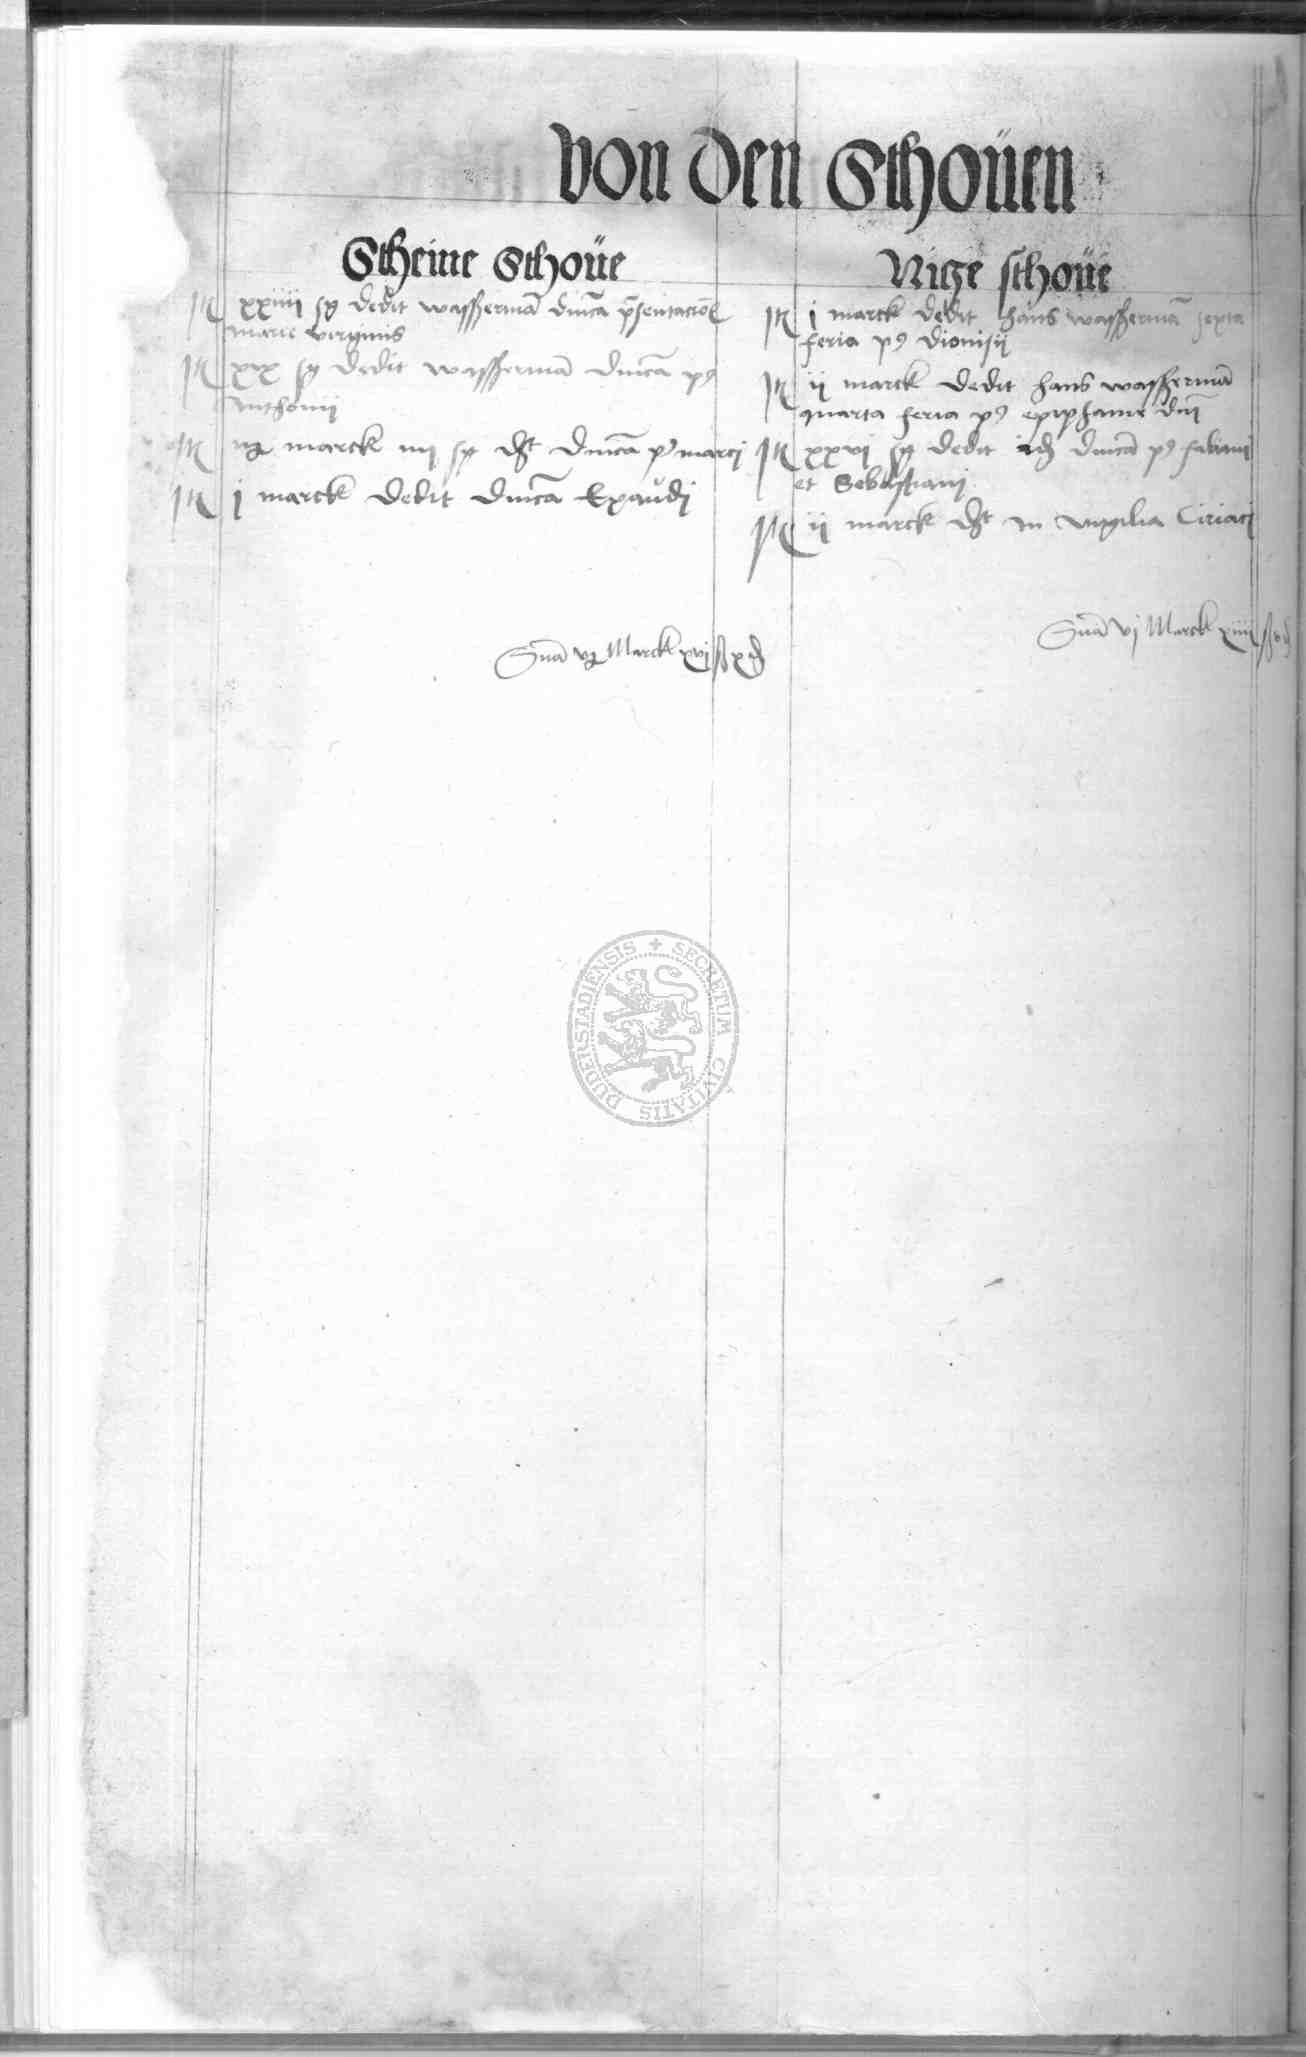 von den Sthoüen
Stheine Sthoüe
It xxiiii sß dedit wasserman̄ dnīca p̄sentacioīs
marie virginis
It xix sß dedit wasserman̄ dnīca pꝰ
Anthonii
It marck iiii sß dt dnīca pꝰ marci
It j marck dedit dnīca Exaudj
Sum̄a Marck xvj ß x ₰
Nige sthoüe
It j marck dedit hans wasserman̄ sexta
feria pꝰ Dionisii
It ij marck dedit hans wasserman̄
quarta feria pꝰ epiphanie dnī
It xxvi sß dedit id dnīca pꝰ fabiani
et Sebastianj
It ij marck dt in vigilia Ciriacj
Sum̄a vj Marck xiiii ß
SECRETUM CIVITATIS DUDERSTADIENSIS